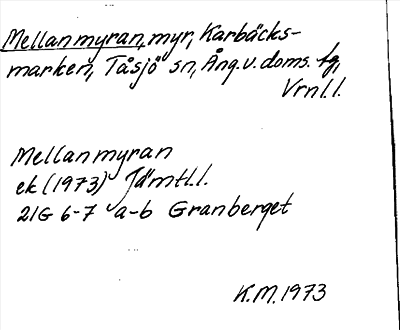 Mellanmyran, myr, Karbäcks-
marken, Tåsjö sn, Ång.v.doms. fg,
Vrnl.l.
Mellanmyran
ek (1973) Jämtl.l.
21G 6-7 a-b Granberget
K.M.1973